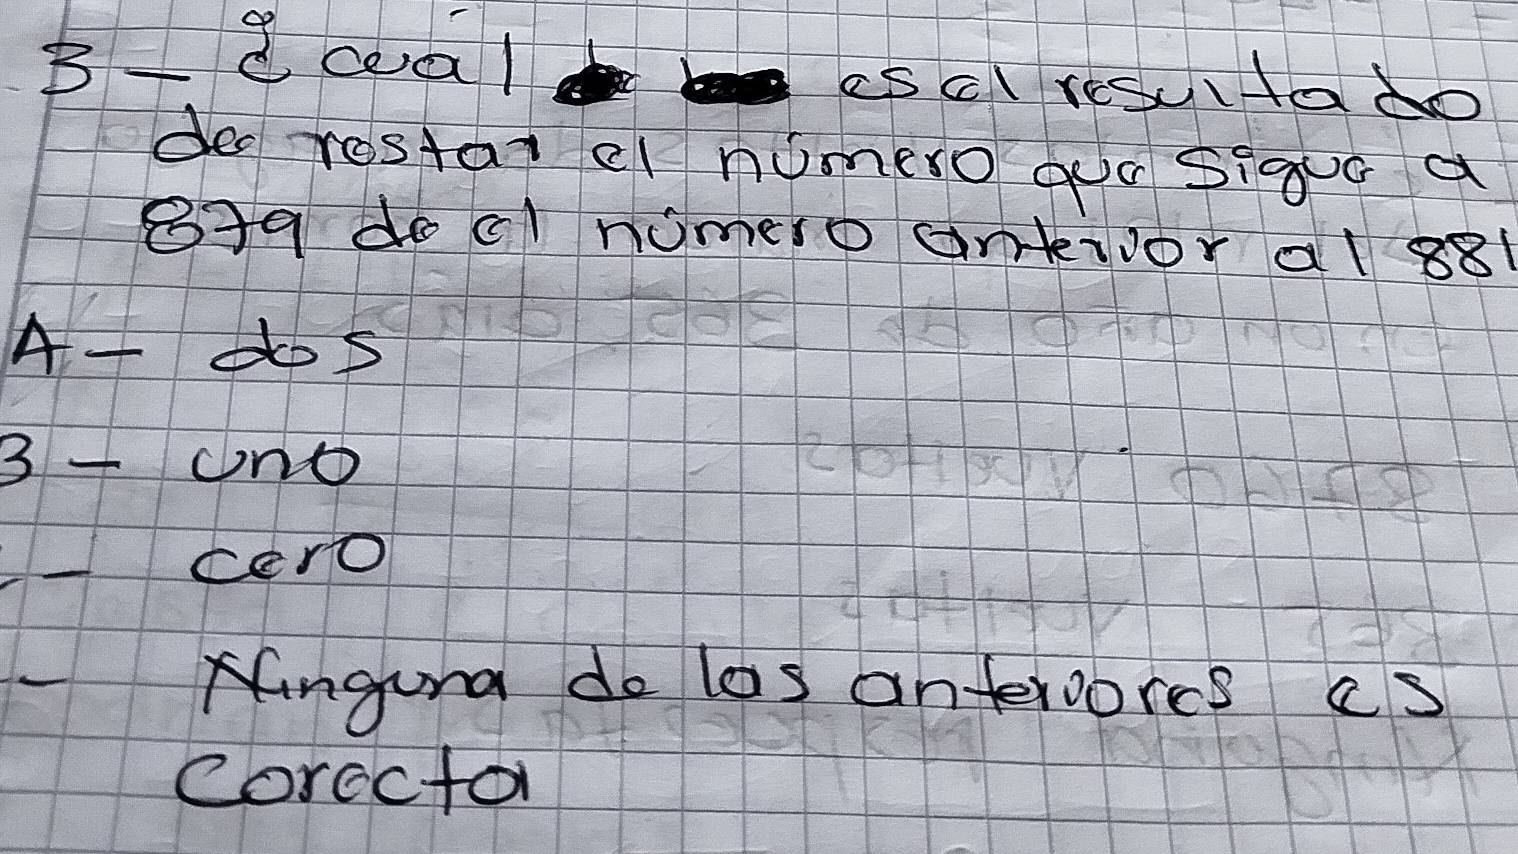 3 - ¿ cual es el resultado
de restar el número que sigue a
879 de el número anterior al 881
A - dos
B - uno
- cero
- Ninguna de las anteriores es
corecta